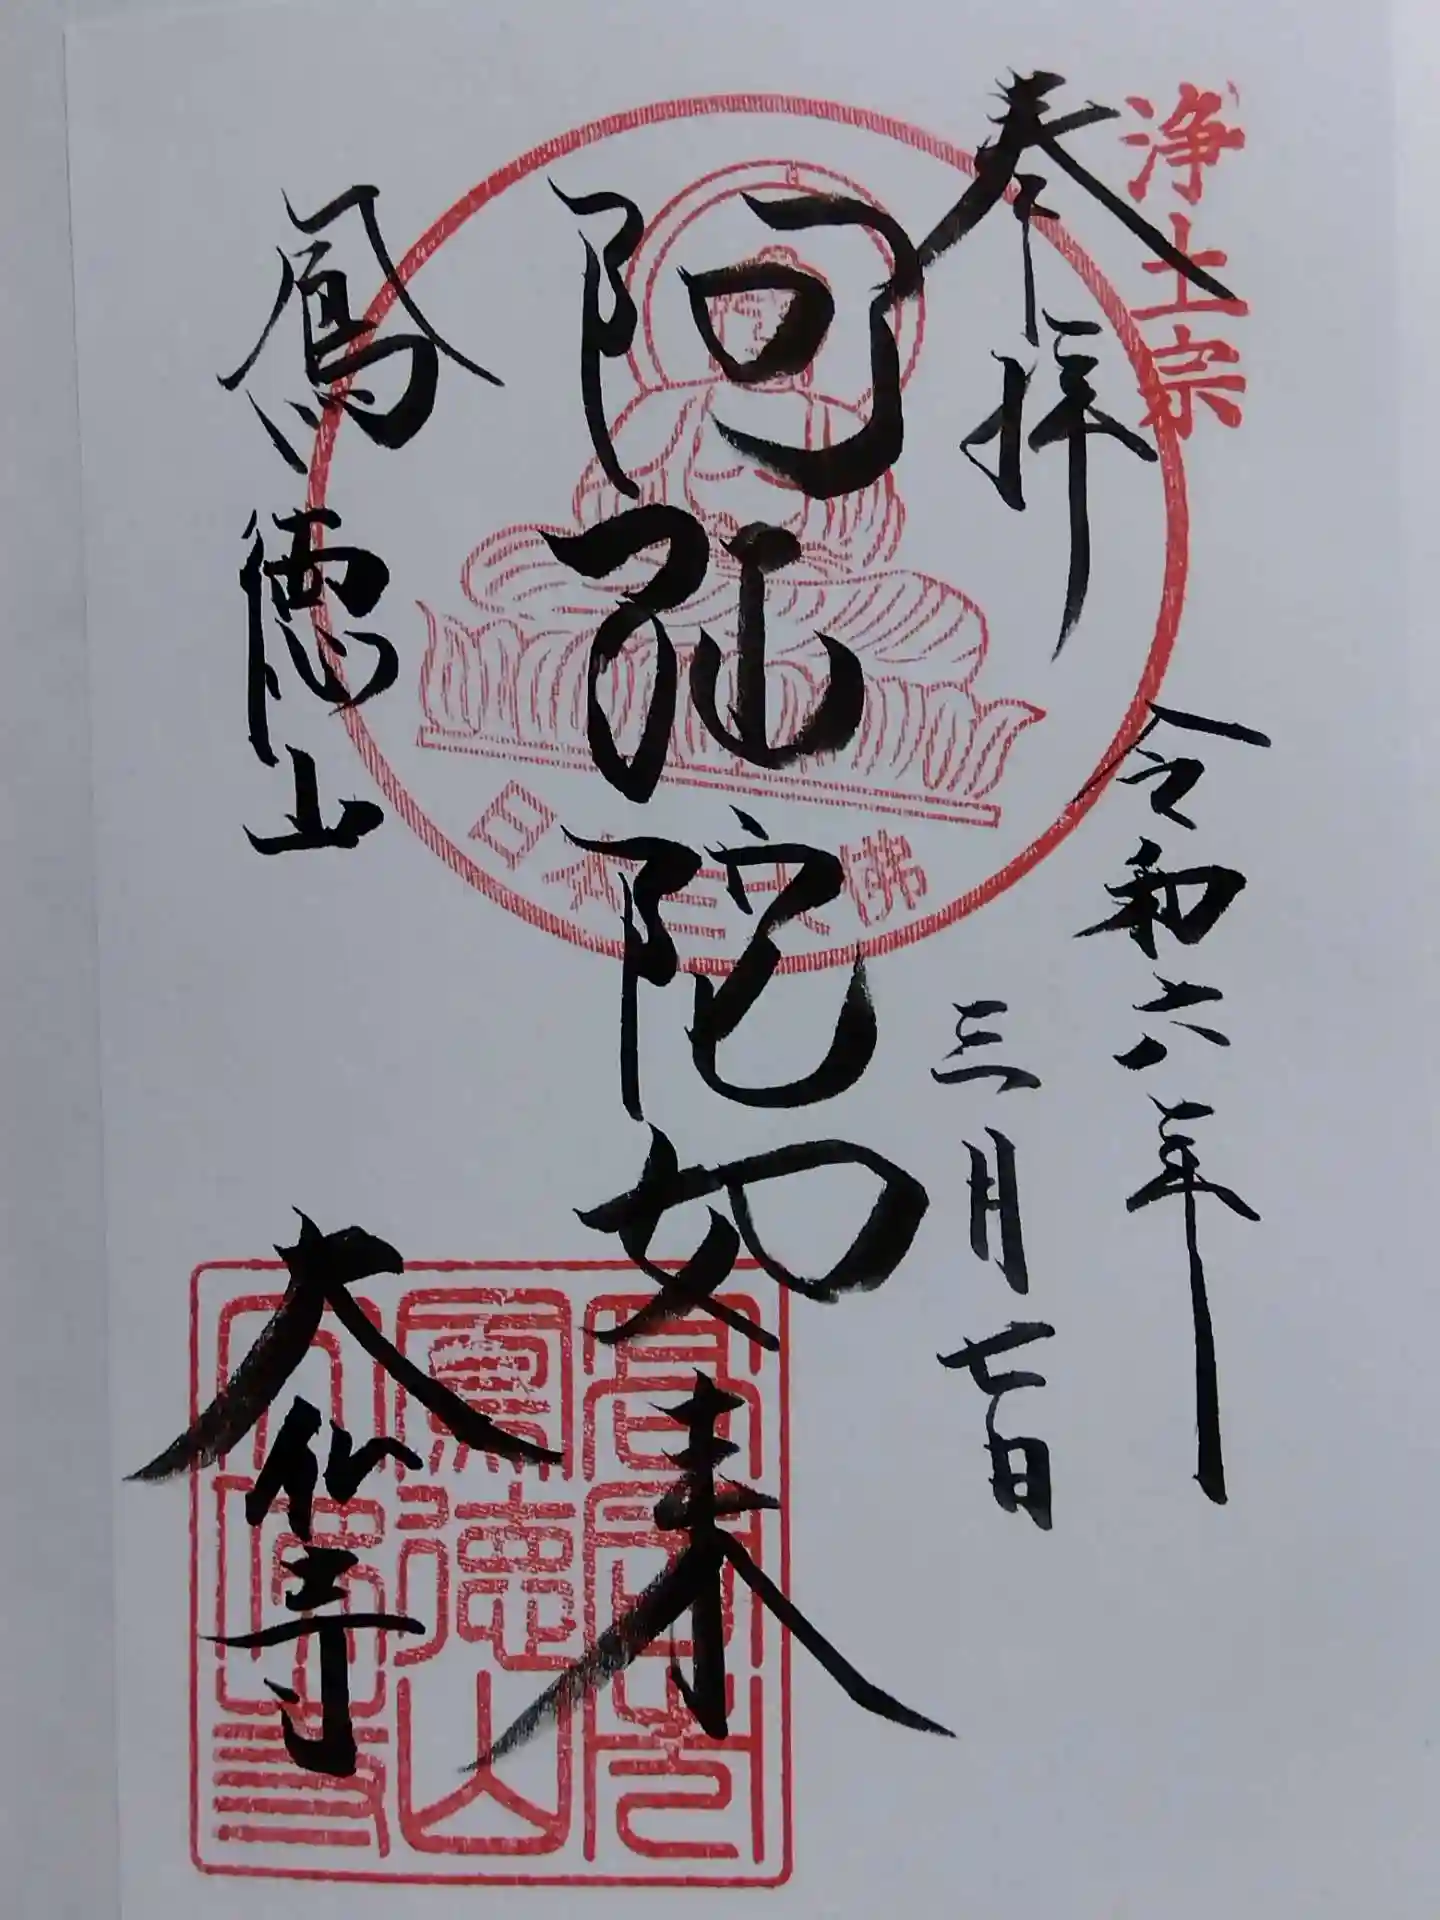 浄土宗
奉拝
令和六年
三月七日
阿弥陀如来
日本三大佛
鳳徳山
大仏寺
鳳徳山
大佛寺